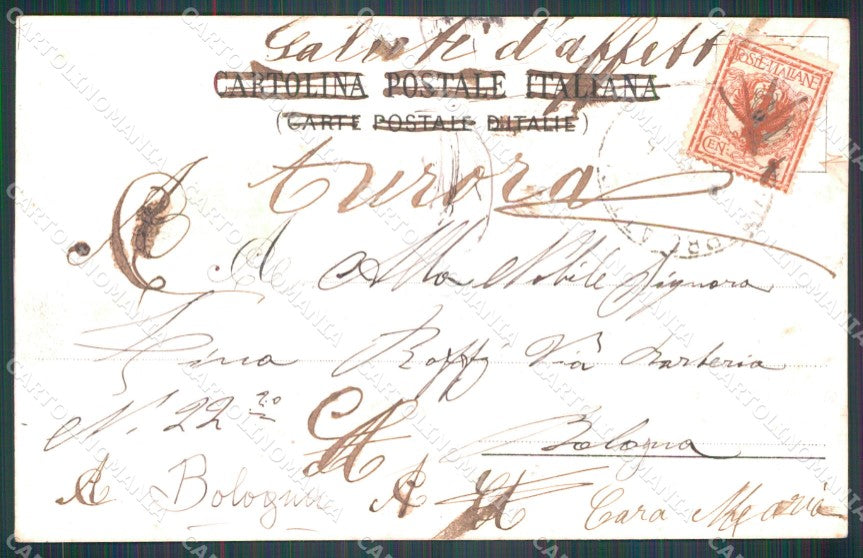 Saluti d'affetto
CARTOLINA POSTALE ITALIANA
(CARTE POSTALE D'ITALIE)
POSTE ITALIANE
CEN.
Aurora
A Alla Nobile Signora
Via Barberia
N. 22 2o
Bologna
A Bologna A A Cara Maria
CARTOLINOMANIA